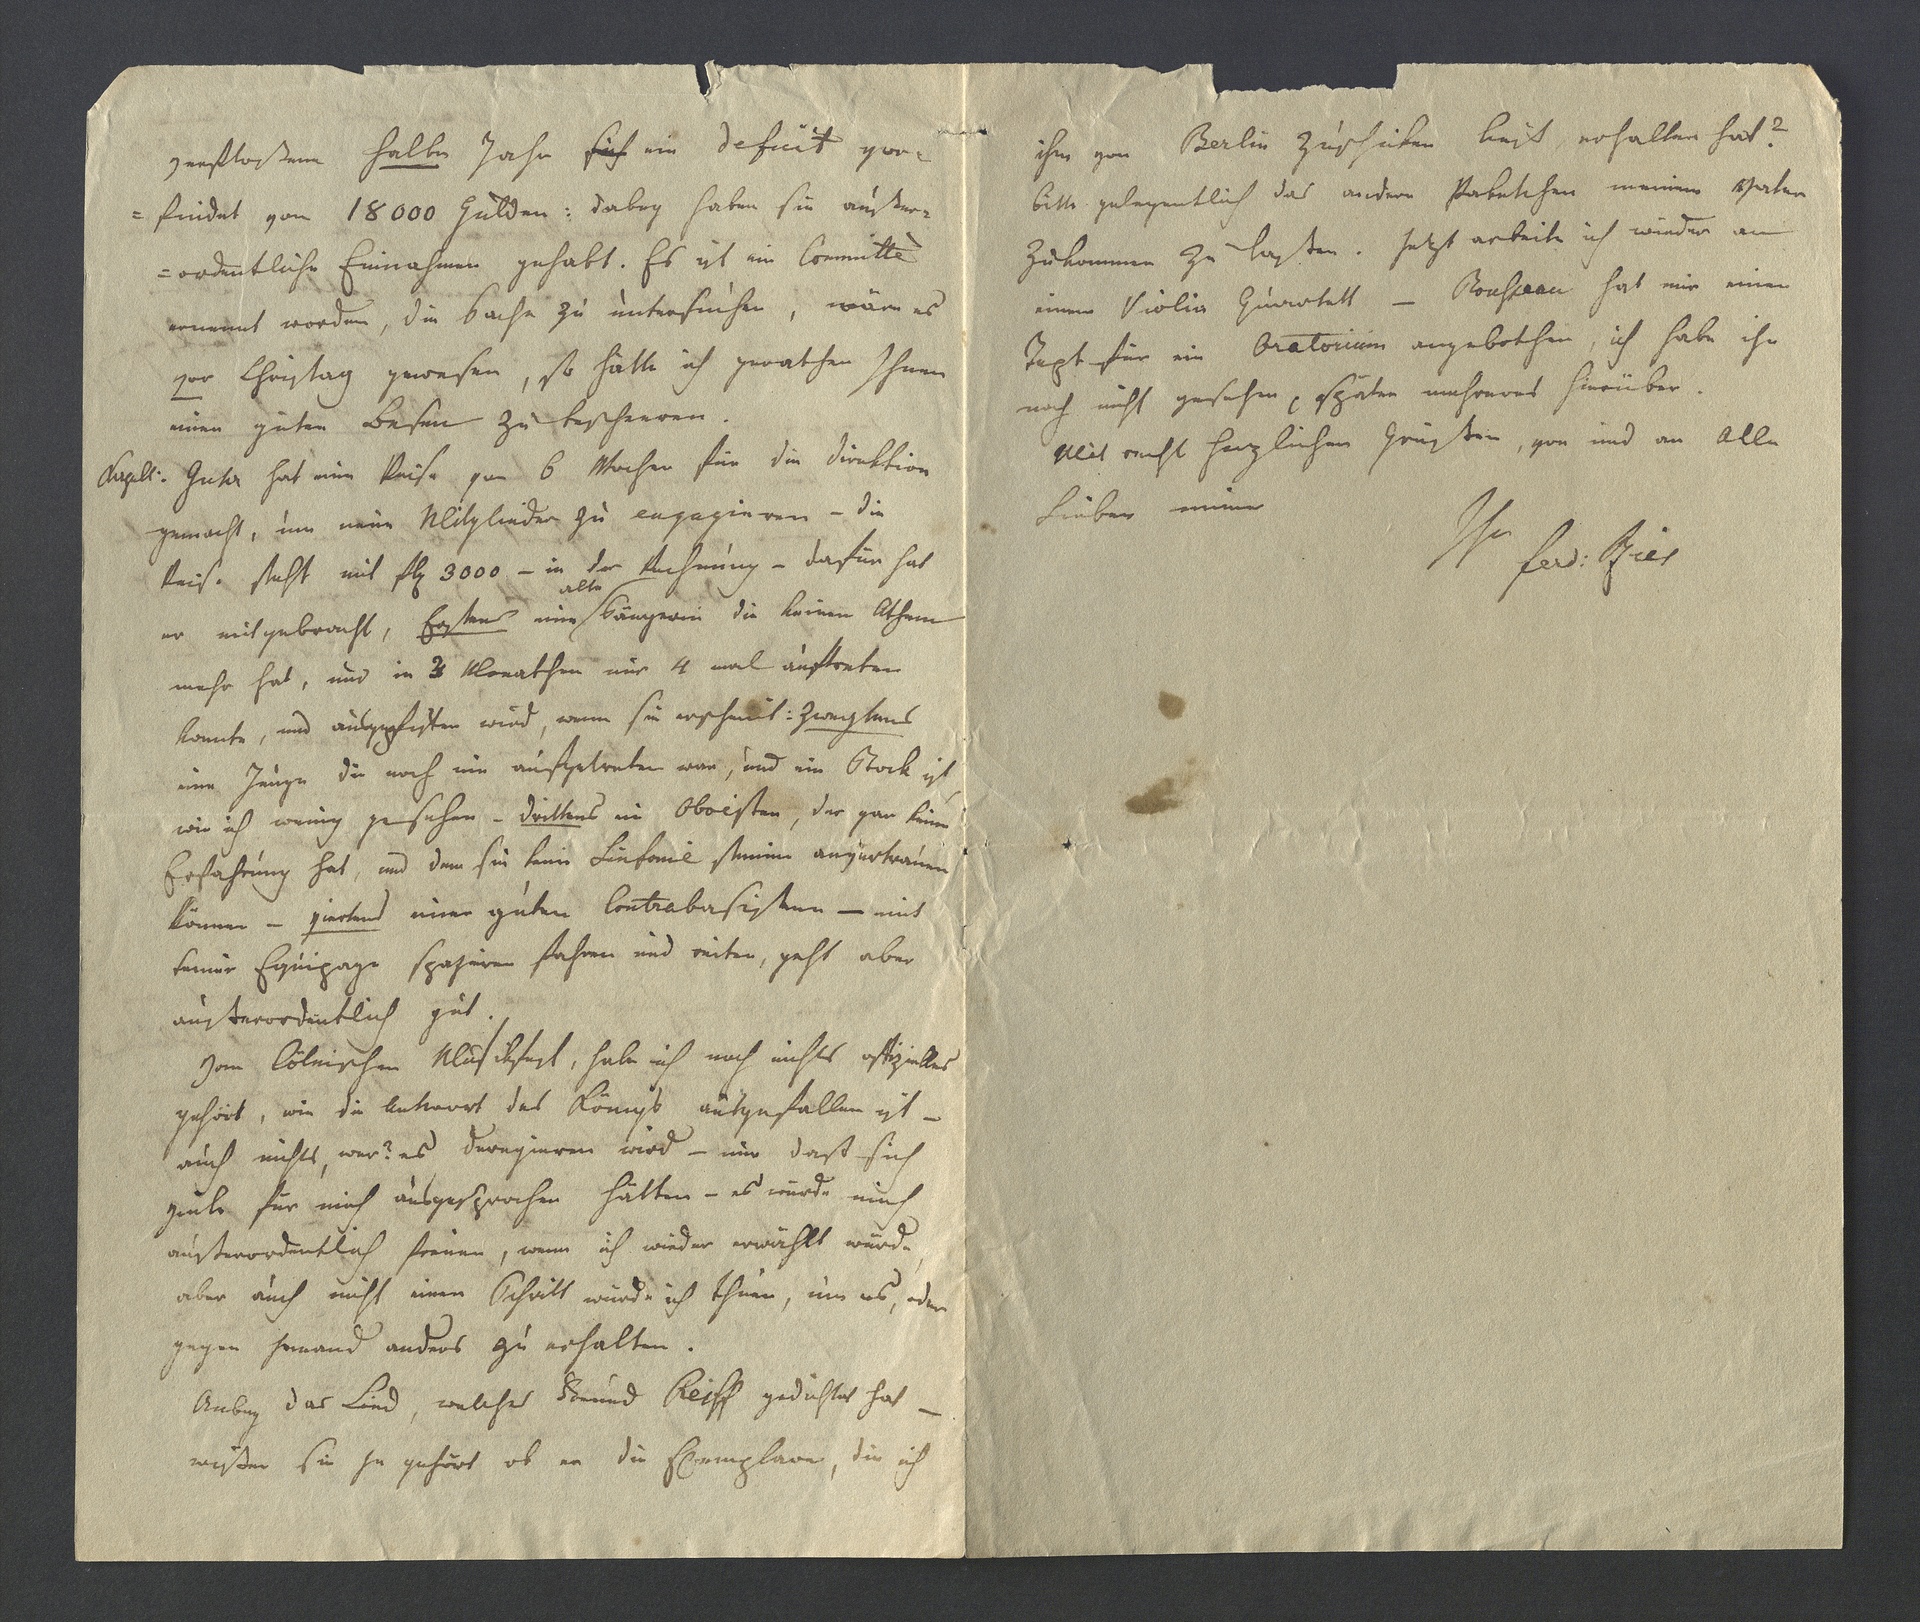 verfloßene halbe Jahr sich ein deficit vor=
=findet von 18000 Gulden: dabey haben sie außer=
=ordentliche Einnahmen gehabt. Es ist ein Committè
ernennt worden, die Sache zu untersuchen, wäre es
vor Christag gewesen, so hätte ich gerathen Ihnen
einen guten Besen zu bescheeren.
Kapell: Guhr hat eine Reise von 6 Wochen für die direktion
gemacht, um neue Mitglieder zu engagieren – die
Reise steht mit fl 3000 – in der Rechnung – dafür hat
er mitgebracht, Erstens eine alte Sängerin die keinen Athem
mehr hat, und in 3 Monathen nur 4 mal auftreten
konnte, und ausgepfiffen wird, wenn sie erscheint: Zweytens
eine Junge die noch nie aufgetreten war, und ein Stock ist
wie ich wenig gesehen – drittens ein Oboisten, der gar keine
Erfahrung hat, und dem sie keine Sinfonie stimme anvertrauen
können – viertens einen guten Contrabasisten – mit
seiner Equipage spazieren fahren und reiten, geht aber
außerordentlich gut.
Vom Cölnischen Musikfest, habe ich noch nichts offizielles
gehört, wie die Antwort des Königs ausgefallen ist –
auch nichts, wer? es deregieren wird – nur daß sich
viele für mich ausgesprochen hätten – es würde mich
außerordentlich freuen, wenn ich wieder erwählt würde,
aber auch nicht einen Schritt würde ich thuen, um es, oder
gegen jemand anders zu erhalten.
Anbey das Lied, welches Freund Reiff gedichtet hat –
wißen sie je gehört ob er die Exemplare, die ich
ihm von Berlin zuschicken ließ, erhalten hat?
bitte gelegentlich das andere Paketchen meinem Vater
zukommen zu laßen. Jetzt arbeite ich wieder an
einem Violin Quartett – Rousseau hat mir einen
Text für ein Oratorium angebothen, ich habe ihn
noch nicht gesehen, später mehreres hierüber.
Mit recht herzlichen Grüßen, von und an Alle
Lieben immer
Ihr
Ferd: Ries